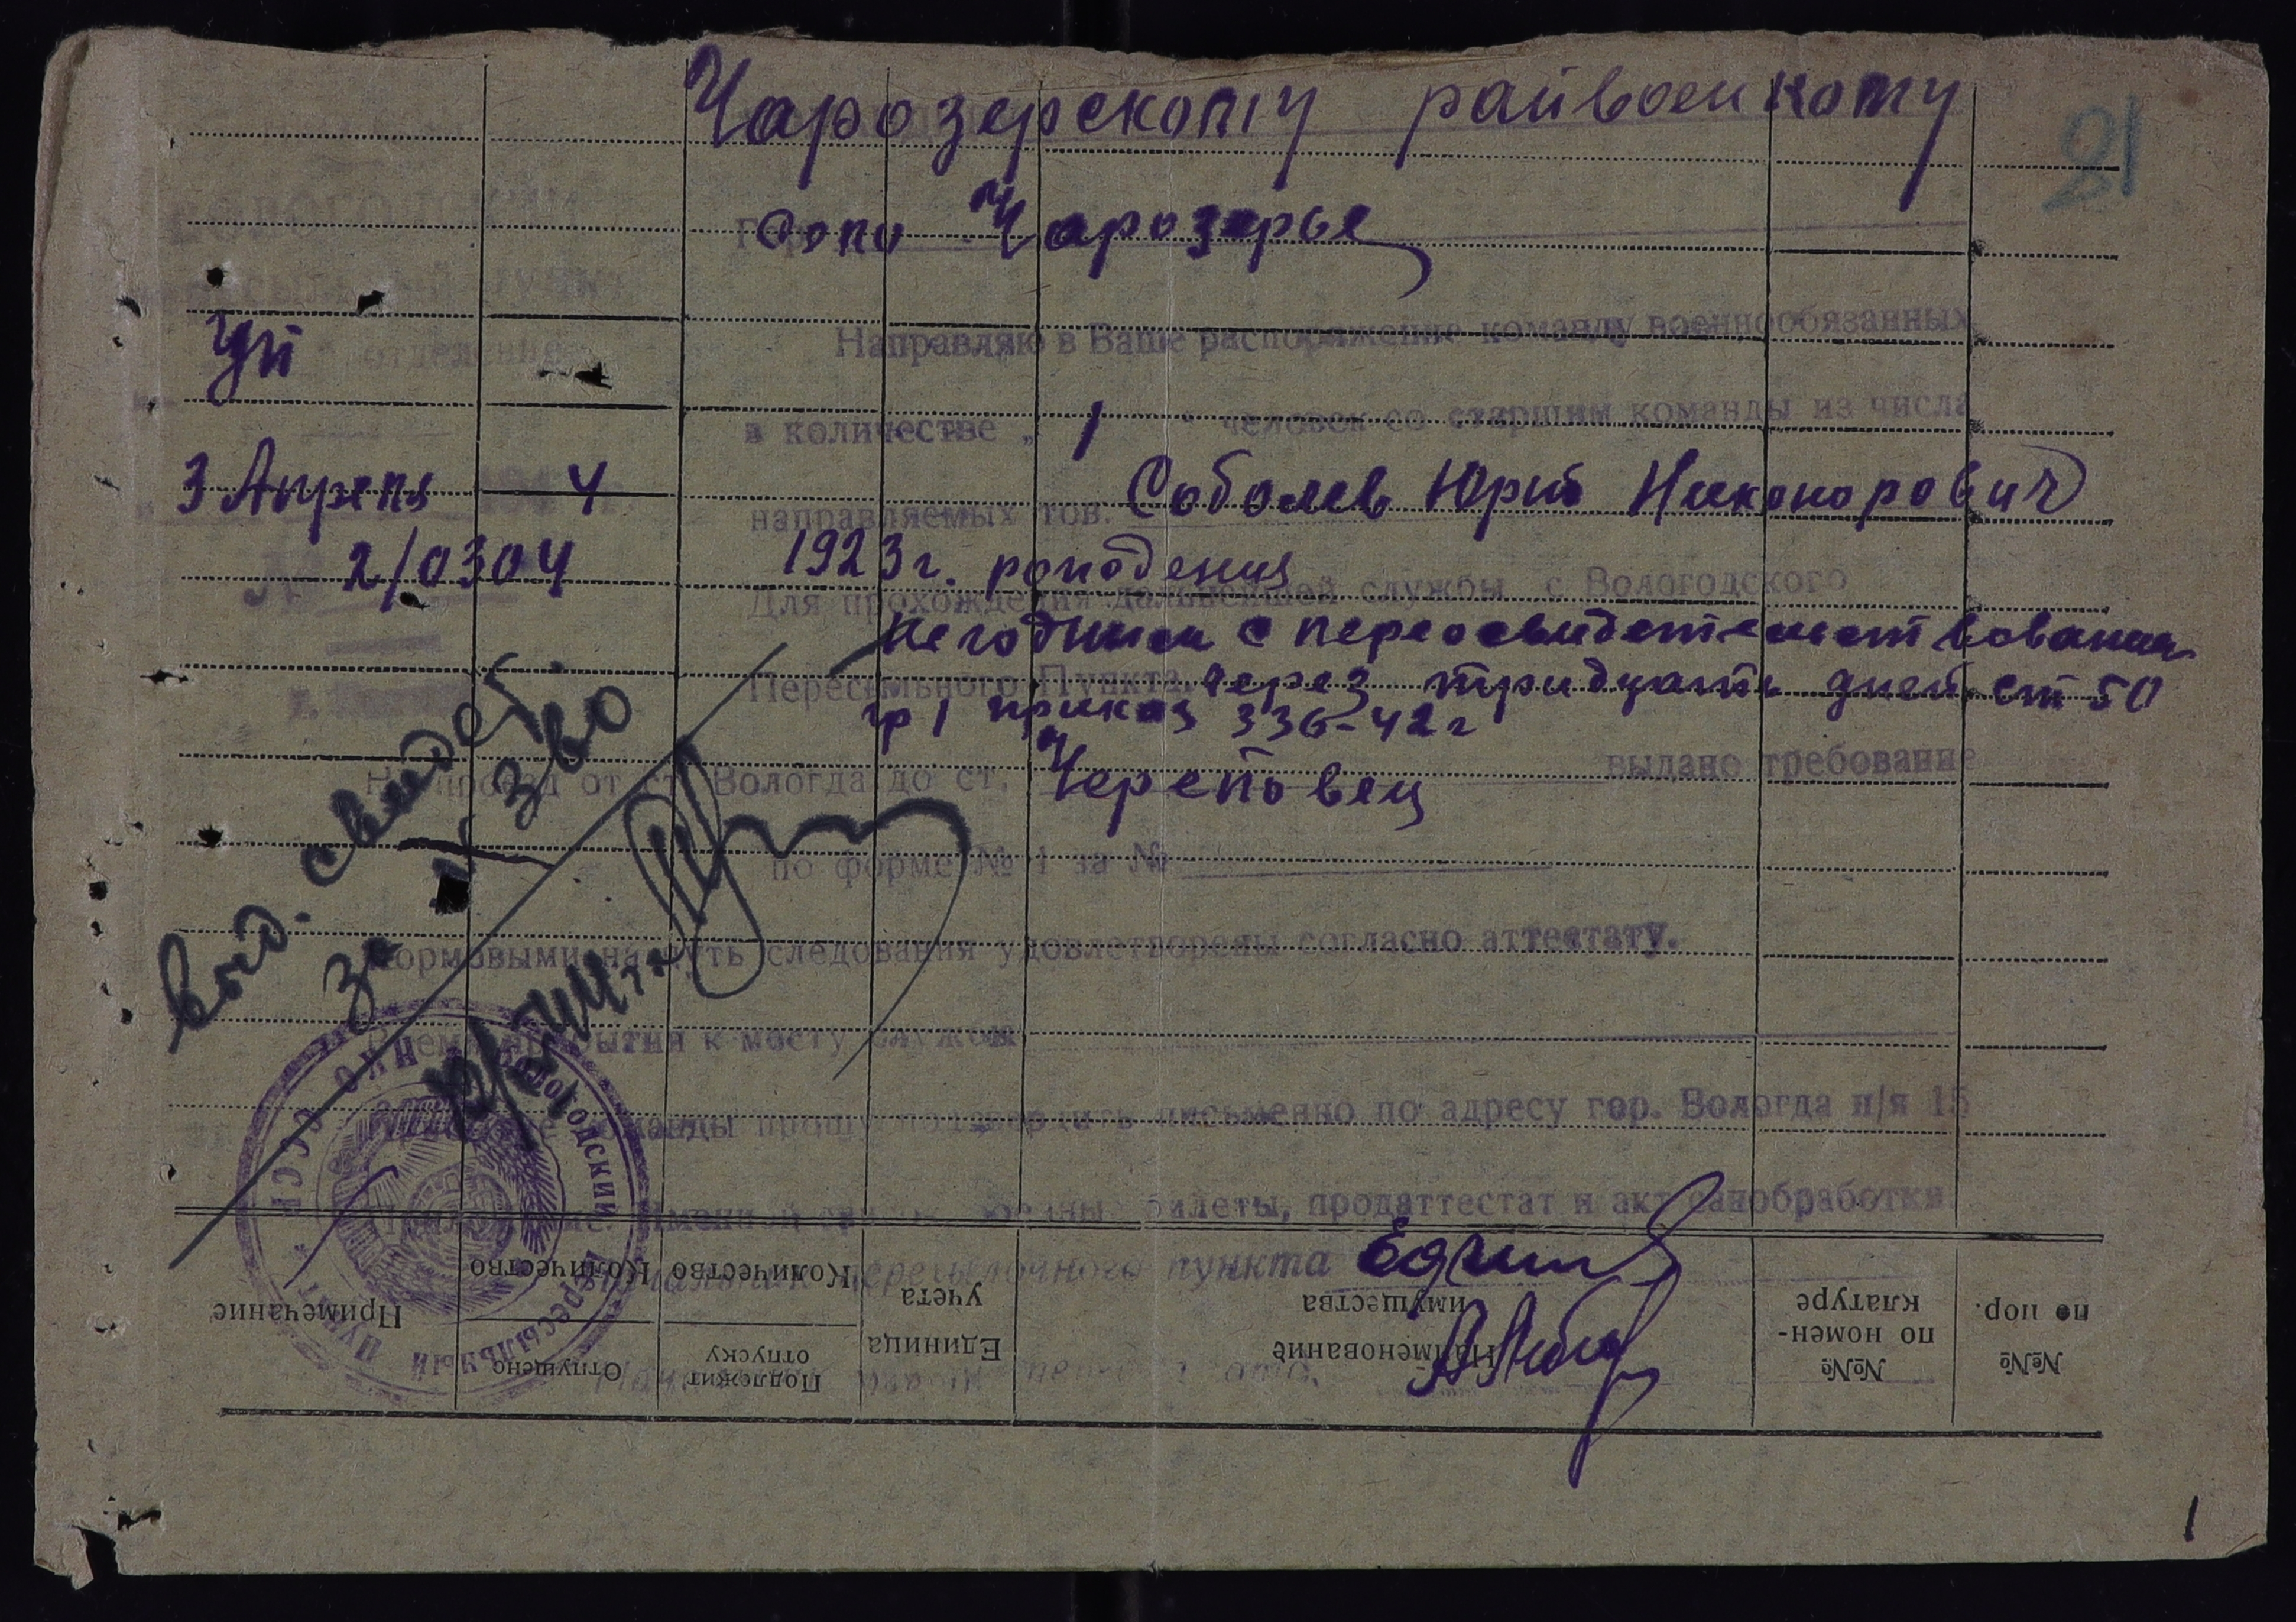 Чарозерскому райвоенкому
21
Гор. Чарозерье
Вологодский
пересыльный пункт
отделение
Уп
Направляю в Ваше распоряжение команду военнообязанных
в количестве „ 1 " человек со старшим команды из числа
3 Апреля 4
направляемых тов. Соболев Юрий Никонорович
2/0304
1923 г. рождения
Для прохождения дальнейшей службы с Вологодского
негодным с переосвидетельствованием
Пересыльного Пункта, через тридцать дней ст 50
гр 1 приказ 336-42 г
На проезд от ст. Вологда до ст. Череповец выдано требование
по форме № 1 за №
Выд. свидет.
за № 360
Кормовыми на путь следования удовлетворены согласно аттестату.
Время прибытия к месту службы
команды прошу подтвердить письменно по адресу гор. Вологда п/я 15
Приложение: Именной билеты, продаттестат и акт санобработки
Начальник пересылочного пункта
НКО СССР
Вологодский Пересыльный Пункт
№№ по пор.
№№ по номен-
клатуре
Наименование
имущества
Единица
учета
Подлежит
отпуску
Количество
Отпущено
Количество
Примечание
1